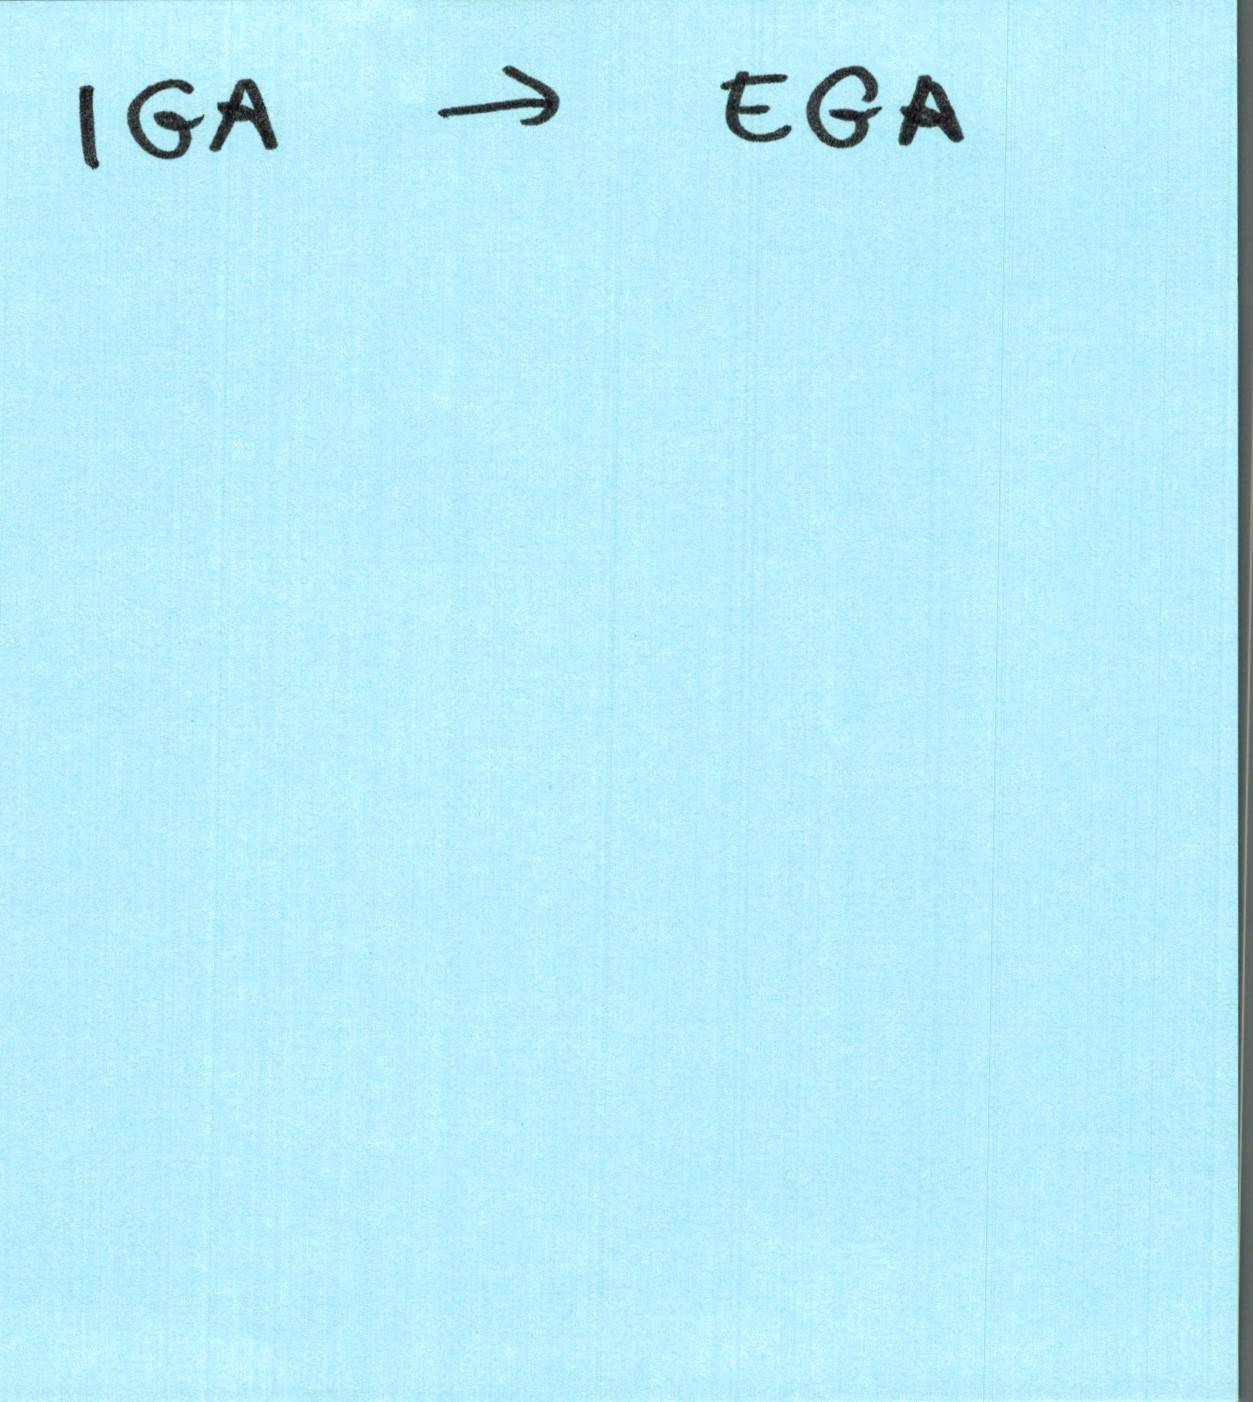 IGA → EGA